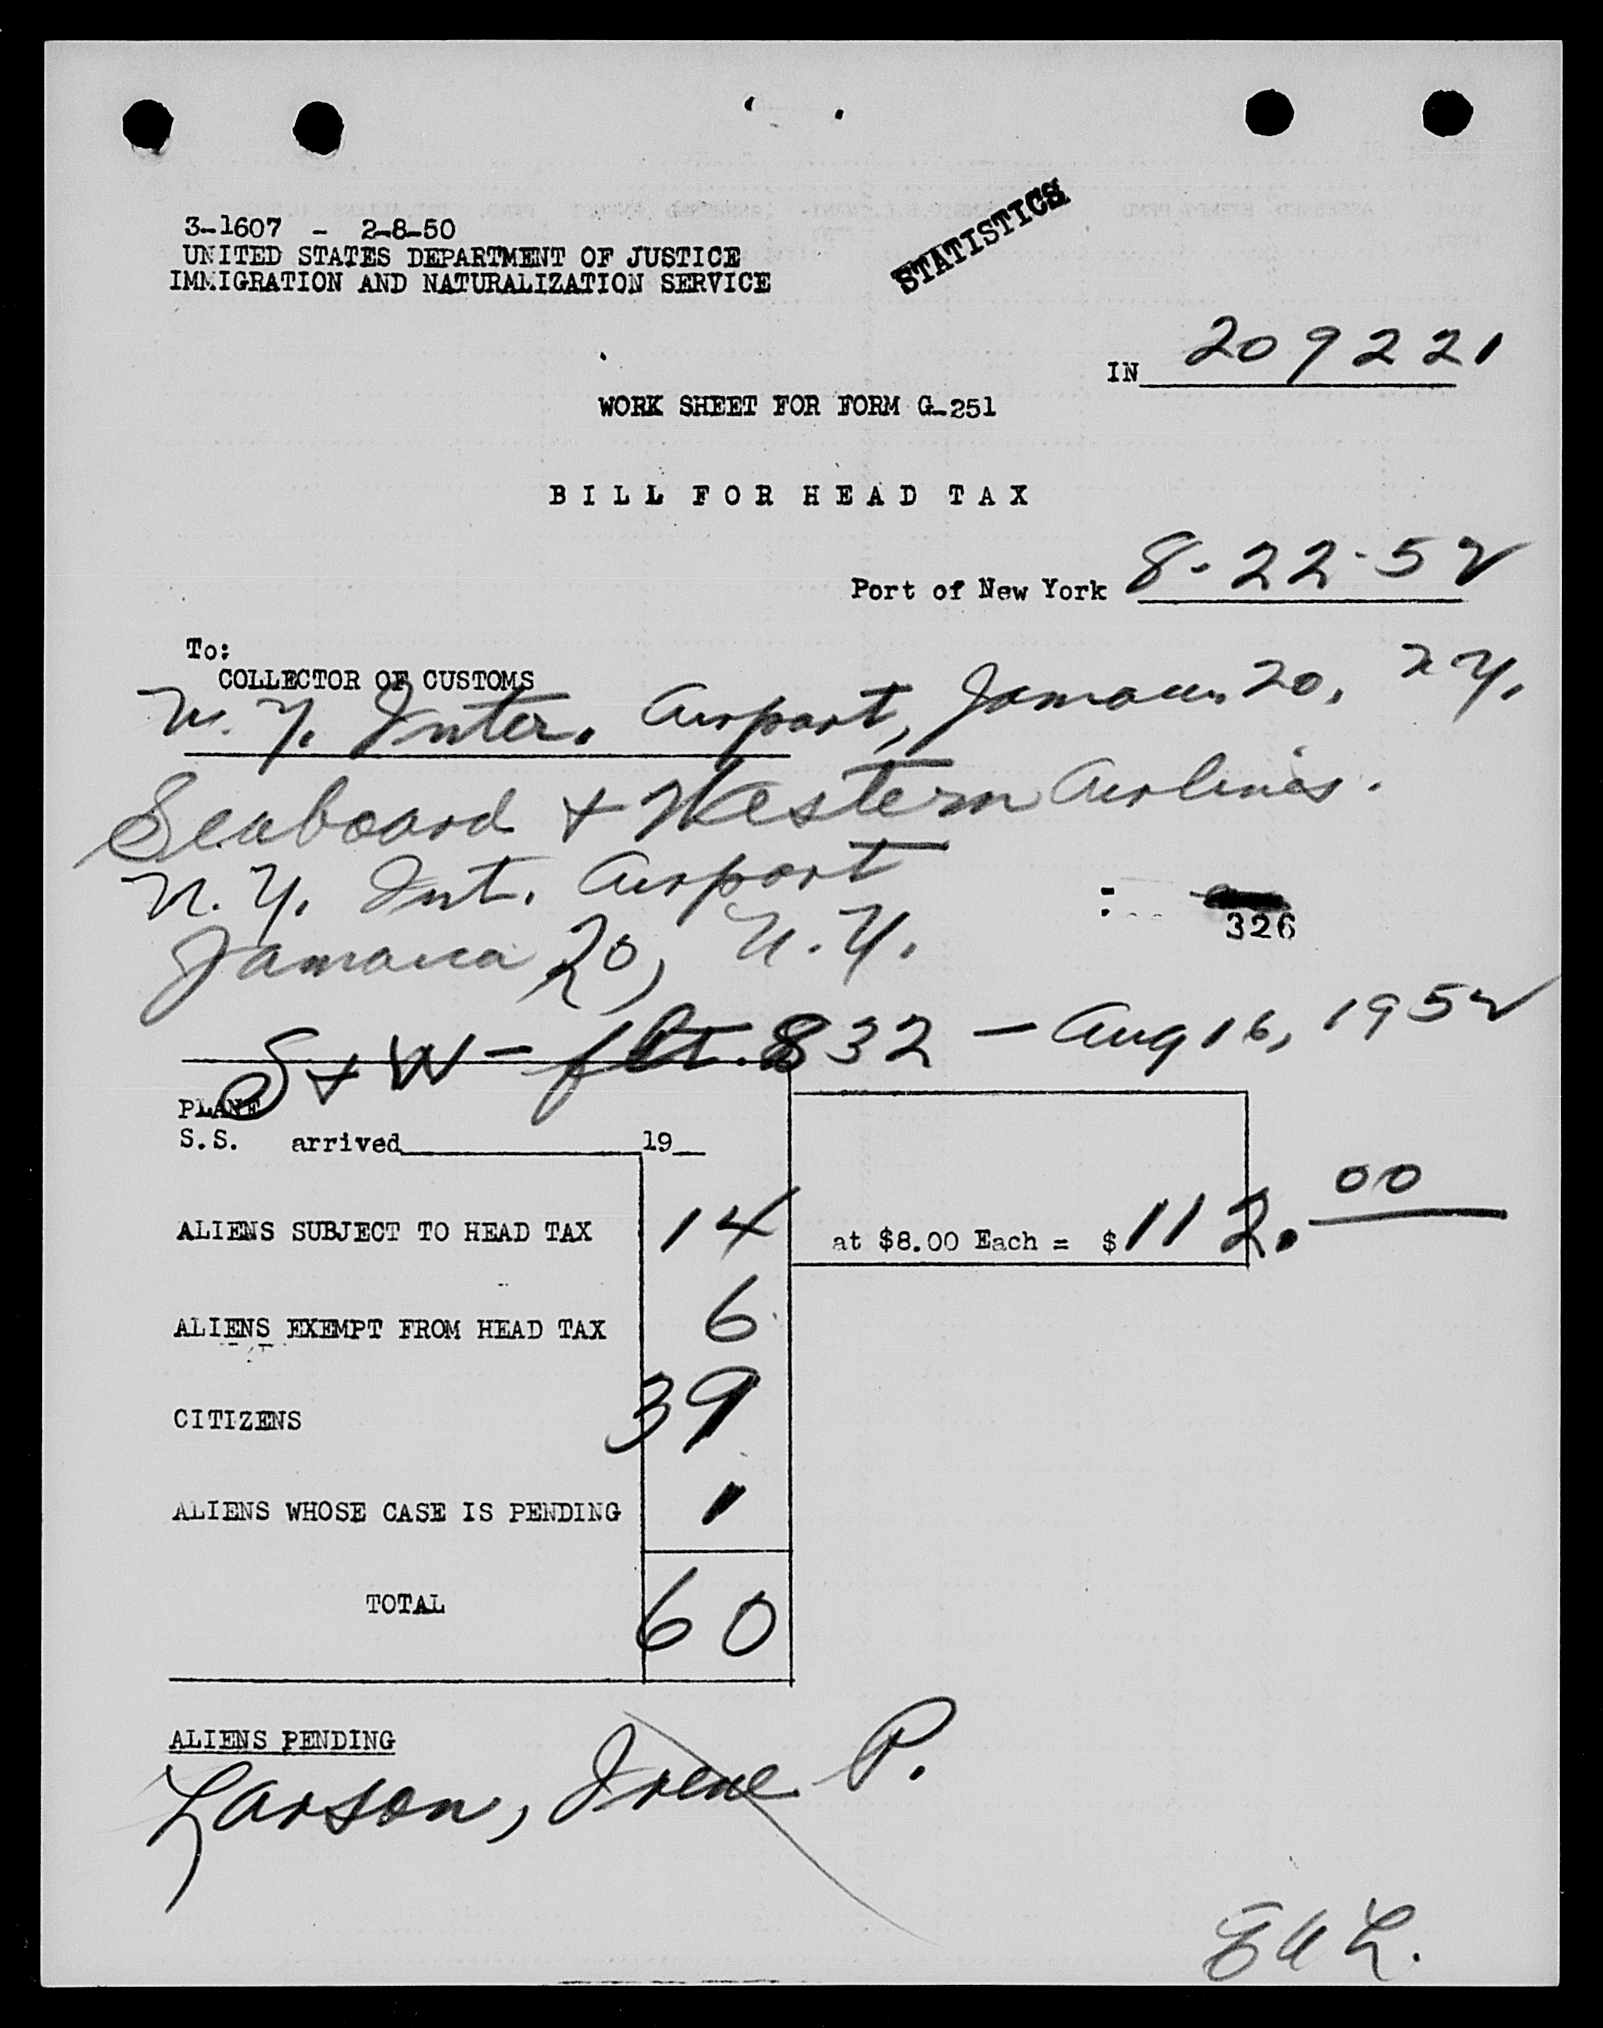 3-1607 - 2-8-50
UNITED STATES DEPARTMENT OF JUSTICE
IMMIGRATION AND NATURALIZATION SERVICE
STATISTICS
IN 209221
WORK SHEET FOR FORM G-251
BILL FOR HEAD TAX
Port of New York 8-22-52
To:
COLLECTOR OF CUSTOMS
N.Y. Inter. Airport, Jamaica 20, N.Y.
Seaboard + Western Airlines.
N.Y. Int. Airport
326
Jamaica 20, N.Y.
S + W - flt. 832 - Aug 16, 1952
PLANE
S.S. arrived 19
ALIENS SUBJECT TO HEAD TAX 14 at $8.00 Each = $112.00
ALIENS EXEMPT FROM HEAD TAX 6
CITIZENS 39
ALIENS WHOSE CASE IS PENDING 1
TOTAL 60
ALIENS PENDING
Larson, Irene P.